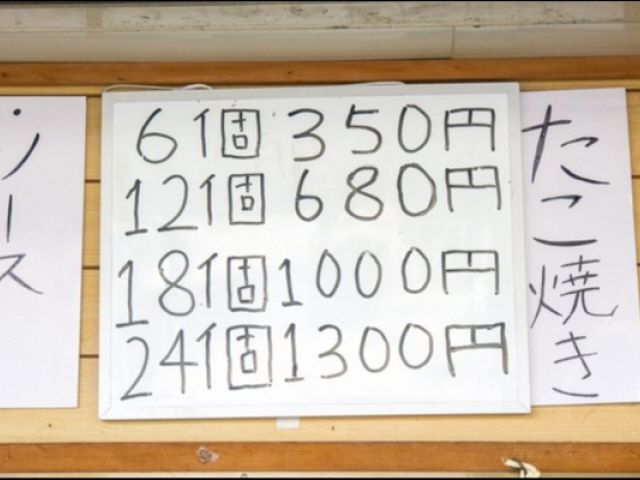 たこ焼き
6個 350円
12個 680円
18個 1000円
24個 1300円
・ソース